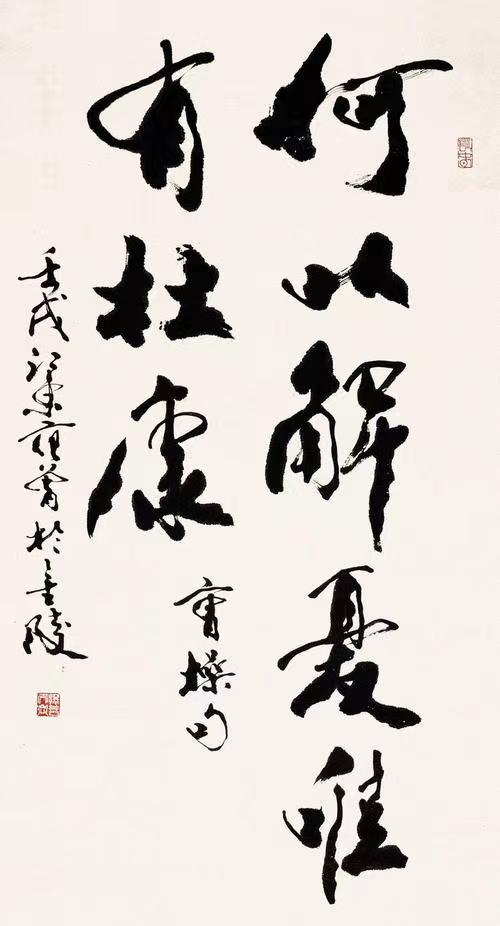 何以解憂唯
有杜康
曹操句
壬戌江東范曾於金陵